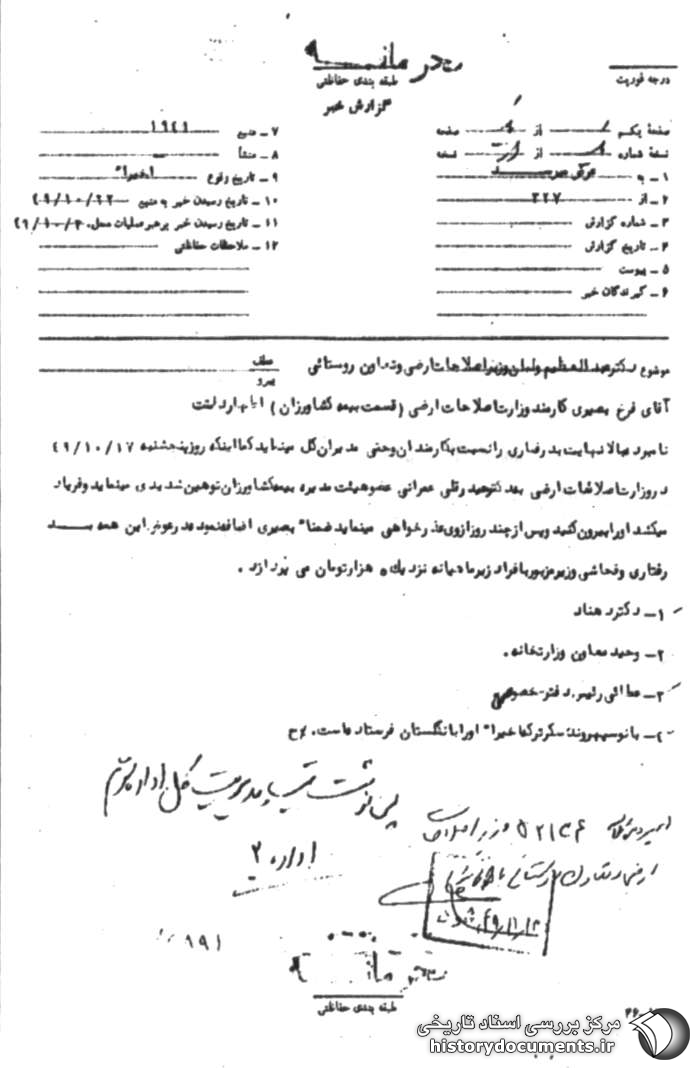 محرمانه
طبقه بندی حفاظتی
گزارش خبر
درجه فوریت
صفحهٔ یکم ۱ از ۱ صفحه
نسخهٔ شماره از نسخه
۱ ـ به
۲ ـ از ۳۲۷
۳ ـ شماره گزارش
۴ ـ تاریخ گزارش
۵ ـ پیوست
۶ ـ گیرندگان خبر
۷ ـ منبع ۱۹۴۱
۸ ـ منشأ
۹ ـ تاریخ وقوع اخیرا"
۱۰ ـ تاریخ رسیدن خبر به منبع ۴۹/۱۰/۲۲
۱۱ ـ تاریخ رسیدن خبر برهبر عملیات محل
۱۲ ـ ملاحظات حفاظتی
موضوع دکتر عبدالعظیم ولیان وزیر اصلاحات ارضی و تعاون روستائی
عطف
پیرو
آقای فرخ بصیری کارمند وزارت اصلاحات ارضی (قسمت بیمه کشاورزان) اظهار داشت
نامبرده بالا نهایت بدرفتاری را نسبت بکارمندان وحتی مدیران کل مینماید کما اینکه روز پنجشنبه ۴۹/۱۰/۱۷
در وزارت اصلاحات ارضی بعد دکتر حیدرقلی عمرانی عضو هیئت مدیره بیمه کشاورزان توهین شدیدی مینماید و فریاد
میکشد اورا بیرون کنید و پس از چند روز ازوی عذرخواهی مینماید ضمنا" بصیری اضافه نمود که در عوض این همه بد
رفتاری وفحاشی وزیر مزبور بافراد زیر ماهیانه نزدیک ۵ هزار تومان می پردازد .
۱ـ دکتر دهناد
۲ـ وحید معاون وزارتخانه.
۳ـ عطائی رئیس دفتر خصوصی
۴ـ بانو سپهروند سکرتر که اخیرا" اورا بانگلستان فرستاده است. ح
اداره ۲
۵۲۱۳۶
محرمانه
طبقه بندی حفاظتی
مرکز بررسی اسناد تاریخی
historydocuments.ir